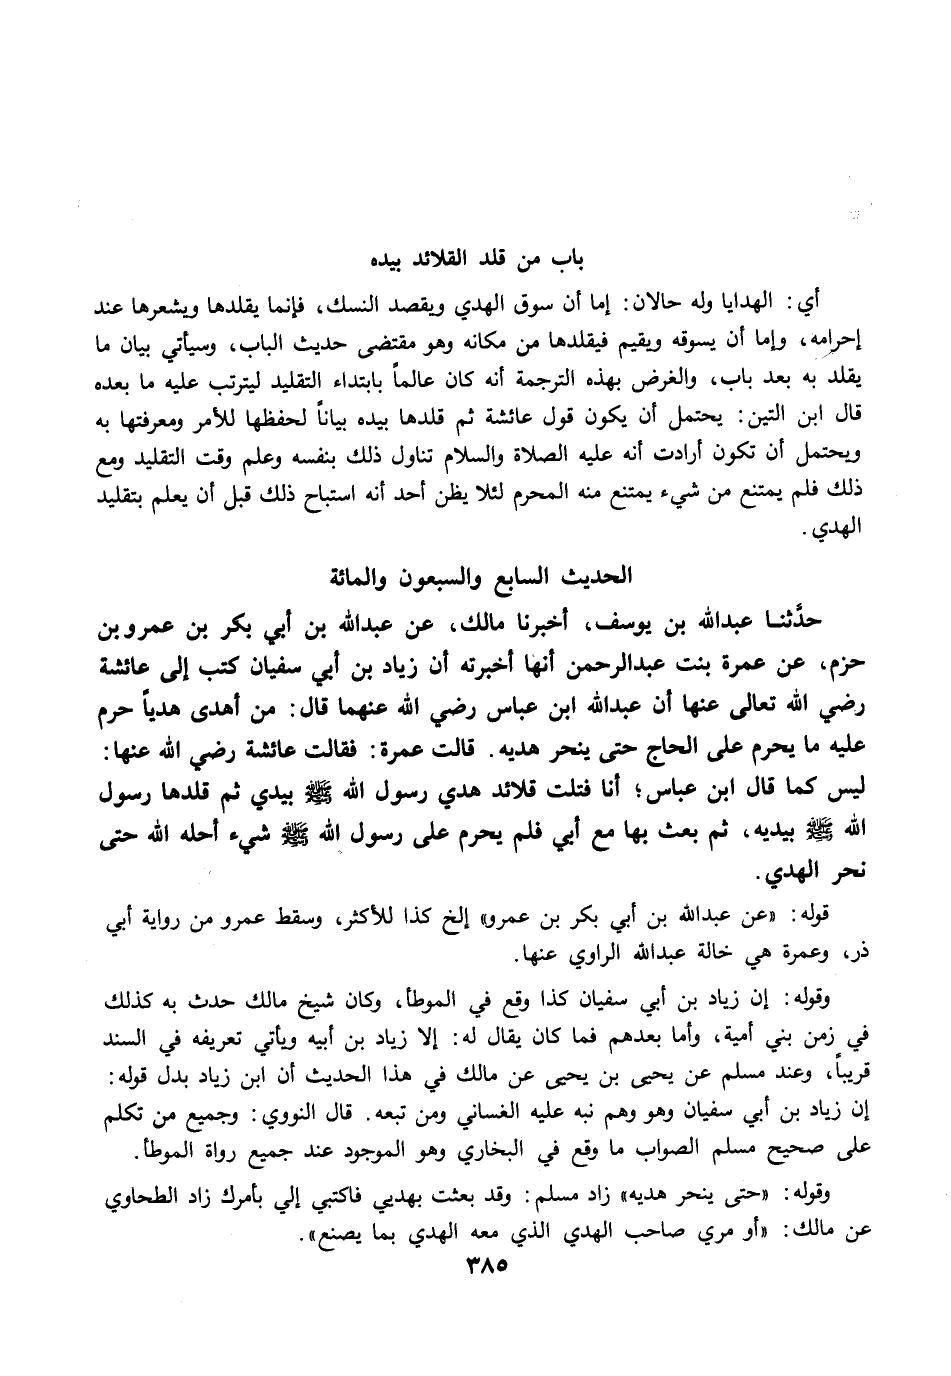 باب من قلد القلائد بيده
أي: الهدايا وله حالان: إما أن سوق الهدي ويقصد النسك، فإنما يقلدها ويشعرها عند
إحرامه، وإما أن يسوقه ويقيم فيقلدها من مكانه وهو مقتضى حديث الباب، وسيأتي بيان ما
يقلد به بعد باب، والغرض بهذه الترجمة أنه كان عالماً بابتداء التقليد ليترتب عليه ما بعده
قال ابن التين: يحتمل أن يكون قول عائشة ثم قلدها بيده بياناً لحفظها للأمر ومعرفتها به
ويحتمل أن تكون أرادت أنه عليه الصلاة والسلام تناول ذلك بنفسه وعلم وقت التقليد ومع
ذلك فلم يمتنع من شيء يمتنع منه المحرم لئلا يظن أحد أنه استباح ذلك قبل أن يعلم بتقليد
الهدي.
الحديث السابع والسبعون والمائة
حدَّثنا عبدالله بن يوسف، أخبرنا مالك، عن عبدالله بن أبي بكر بن عمرو بن
حزم، عن عمرة بنت عبدالرحمن أنها أخبرته أن زياد بن أبي سفيان كتب إلى عائشة
رضي الله تعالى عنها أن عبدالله ابن عباس رضي الله عنهما قال: من أهدى هدياً حرم
عليه ما يحرم على الحاج حتى ينحر هديه. قالت عمرة: فقالت عائشة رضي الله عنها:
ليس كما قال ابن عباس؛ أنا فتلت قلائد هدي رسول الله ﷺ بيدي ثم قلدها رسول
الله ﷺ بيديه، ثم بعث بها مع أبي فلم يحرم على رسول الله ﷺ شيء أحله الله حتى
نحر الهدي.
قوله: «عن عبدالله بن أبي بكر بن عمرو» إلخ كذا للأكثر، وسقط عمرو من رواية أبي
ذر، وعمرة هي خالة عبدالله الراوي عنها.
وقوله: إن زياد بن أبي سفيان كذا وقع في الموطأ، وكان شيخ مالك حدث به كذلك
في زمن بني أمية، وأما بعدهم فما كان يقال له: إلا زياد بن أبيه ويأتي تعريفه في السند
قريباً، وعند مسلم عن يحيى بن يحيى عن مالك في هذا الحديث أن ابن زياد بدل قوله:
إن زياد بن أبي سفيان وهو وهم نبه عليه الغساني ومن تبعه. قال النووي: وجميع من تكلم
على صحيح مسلم الصواب ما وقع في البخاري وهو الموجود عند جميع رواة الموطأ.
وقوله: «حتى ينحر هديه» زاد مسلم: وقد بعثت بهديي فاكتبي إلي بأمرك زاد الطحاوي
عن مالك: «أو مري صاحب الهدي الذي معه الهدي بما يصنع».
٣٨٥